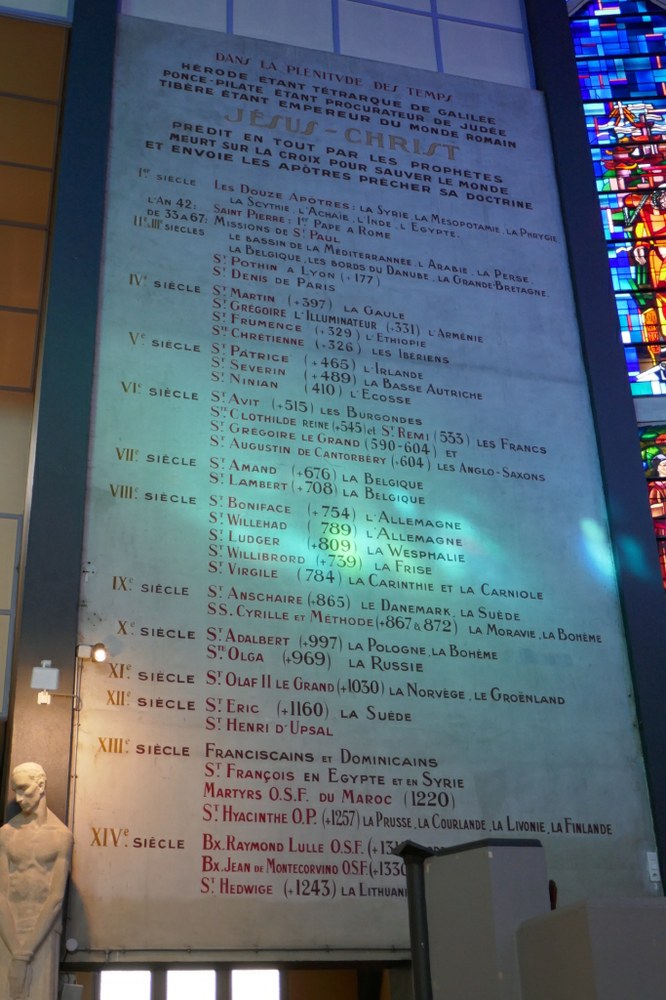 DANS LA PLENITVDE DES TEMPS
HÉRODE ÉTANT TÉTRARQUE DE GALILÉE
PONCE-PILATE ÉTANT PROCURATEUR DE JUDÉE
TIBÈRE ÉTANT EMPEREUR DU MONDE ROMAIN
JÉSUS-CHRIST
PRÉDIT EN TOUT PAR LES PROPHÈTES
MEURT SUR LA CROIX POUR SAUVER LE MONDE
ET ENVOIE LES APÔTRES PRÊCHER SA DOCTRINE
Ier SIÈCLE LES DOUZE APÔTRES: LA SYRIE, LA MÉSOPOTAMIE, LA PHRYGIE
LA SCYTHIE, L'ACHAÏE, L'INDE, L'EGYPTE.
L'AN 42: SAINT PIERRE: 1er PAPE A ROME
DE 33 A 67: MISSIONS DE ST PAUL
IIe-IIIe SIÈCLES LE BASSIN DE LA MÉDITERRANNÉE, L'ARABIE, LA PERSE
LA BELGIQUE, LES BORDS DU DANUBE, LA GRANDE-BRETAGNE.
ST POTHIN A LYON (+177)
ST DENIS DE PARIS
IVe SIÈCLE ST MARTIN (+397) LA GAULE
ST GRÉGOIRE L'ILLUMINATEUR (+331) L'ARMÉNIE
ST FRUMENCE (+329) L'ETHIOPIE
STE CHRÉTIENNE (+326) LES IBÉRIENS
Ve SIÈCLE ST PATRICE (+465) L'IRLANDE
ST SEVERIN (+489) LA BASSE AUTRICHE
ST NINIAN (410) L'ECOSSE
VIe SIÈCLE ST AVIT (+515) LES BURGONDES
STE CLOTHILDE REINE (+545) et ST REMI (533) LES FRANCS
ST GRÉGOIRE LE GRAND (590-604) ET
ST AUGUSTIN DE CANTORBÉRY (+604) LES ANGLO-SAXONS
VIIe SIÈCLE ST AMAND (+676) LA BELGIQUE
ST LAMBERT (+708) LA BELGIQUE
VIIIe SIÈCLE ST BONIFACE (+754) L'ALLEMAGNE
ST WILLEHAD (789) L'ALLEMAGNE
ST LUDGER (+809) LA WESPHALIE
ST WILLIBRORD (+739) LA FRISE
ST VIRGILE (784) LA CARINTHIE ET LA CARNIOLE
IXe SIÈCLE ST ANSCHAIRE (+865) LE DANEMARK, LA SUÈDE
SS. CYRILLE ET MÉTHODE (+867 & 872) LA MORAVIE, LA BOHÈME
Xe SIÈCLE ST ADALBERT (+997) LA POLOGNE, LA BOHÈME
STE OLGA (+969) LA RUSSIE
XIe SIÈCLE ST OLAF II LE GRAND (+1030) LA NORVÈGE, LE GROËNLAND
XIIe SIÈCLE ST ERIC (+1160) LA SUÈDE
ST HENRI D'UPSAL
XIIIe SIÈCLE FRANCISCAINS ET DOMINICAINS
ST FRANÇOIS EN EGYPTE ET EN SYRIE
MARTYRS O.S.F. DU MAROC (1220)
ST HYACINTHE O.P. (+1257) LA PRUSSE, LA COURLANDE, LA LIVONIE, LA FINLANDE
XIVe SIÈCLE BX. RAYMOND LULLE O.S.F.
BX. JEAN DE MONTECORVINO O.S.F.
ST HEDWIGE (+1243) LA LITHUANI